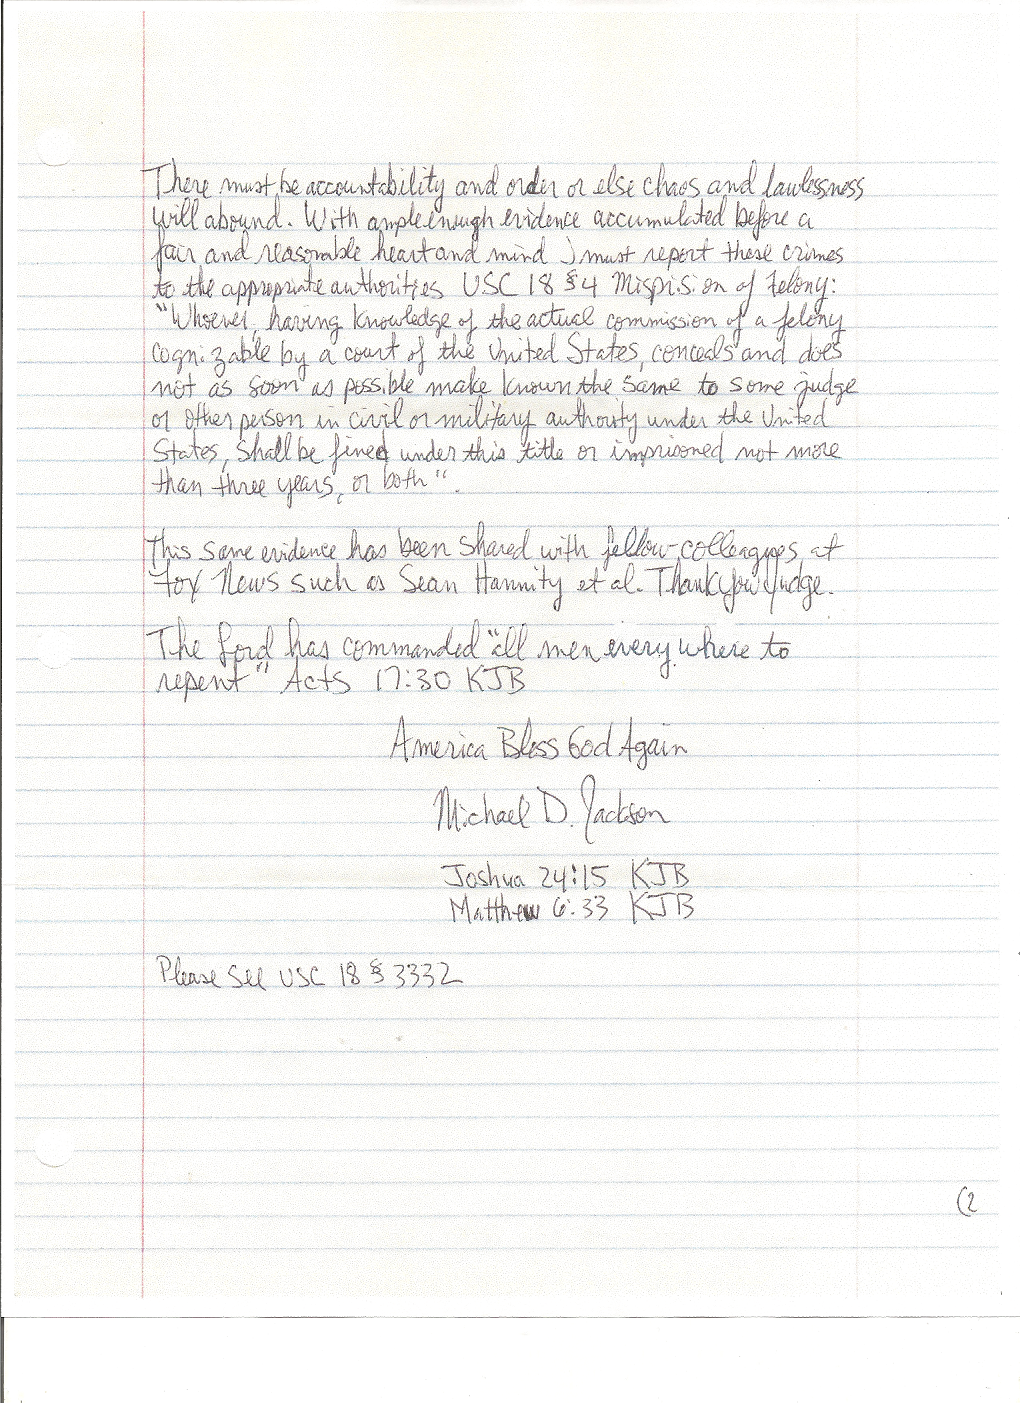 There must be accountability and order or else chaos and lawlessness
will abound. With ample enough evidence accumulated before a
fair and reasonable heart and mind I must report these crimes
to the appropriate authorities USC 18 §4 Misprision of Felony:
"Whoever, having knowledge of the actual commission of a felony
cognizable by a court of the United States, conceals and does
not as soon as possible make known the same to some judge
or other person in civil or military authority under the United
States, shall be fined under this title or imprisoned not more
than three years, or both".
This same evidence has been shared with fellow-colleagues at
Fox News such as Sean Hannity et al. Thank you Judge.
The Lord has commanded "all men every where to
repent" Acts 17:30 KJB
America Bless God Again
Michael D. Jackson
Joshua 24:15 KJB
Matthew 6:33 KJB
Please see USC 18 § 3332
(2